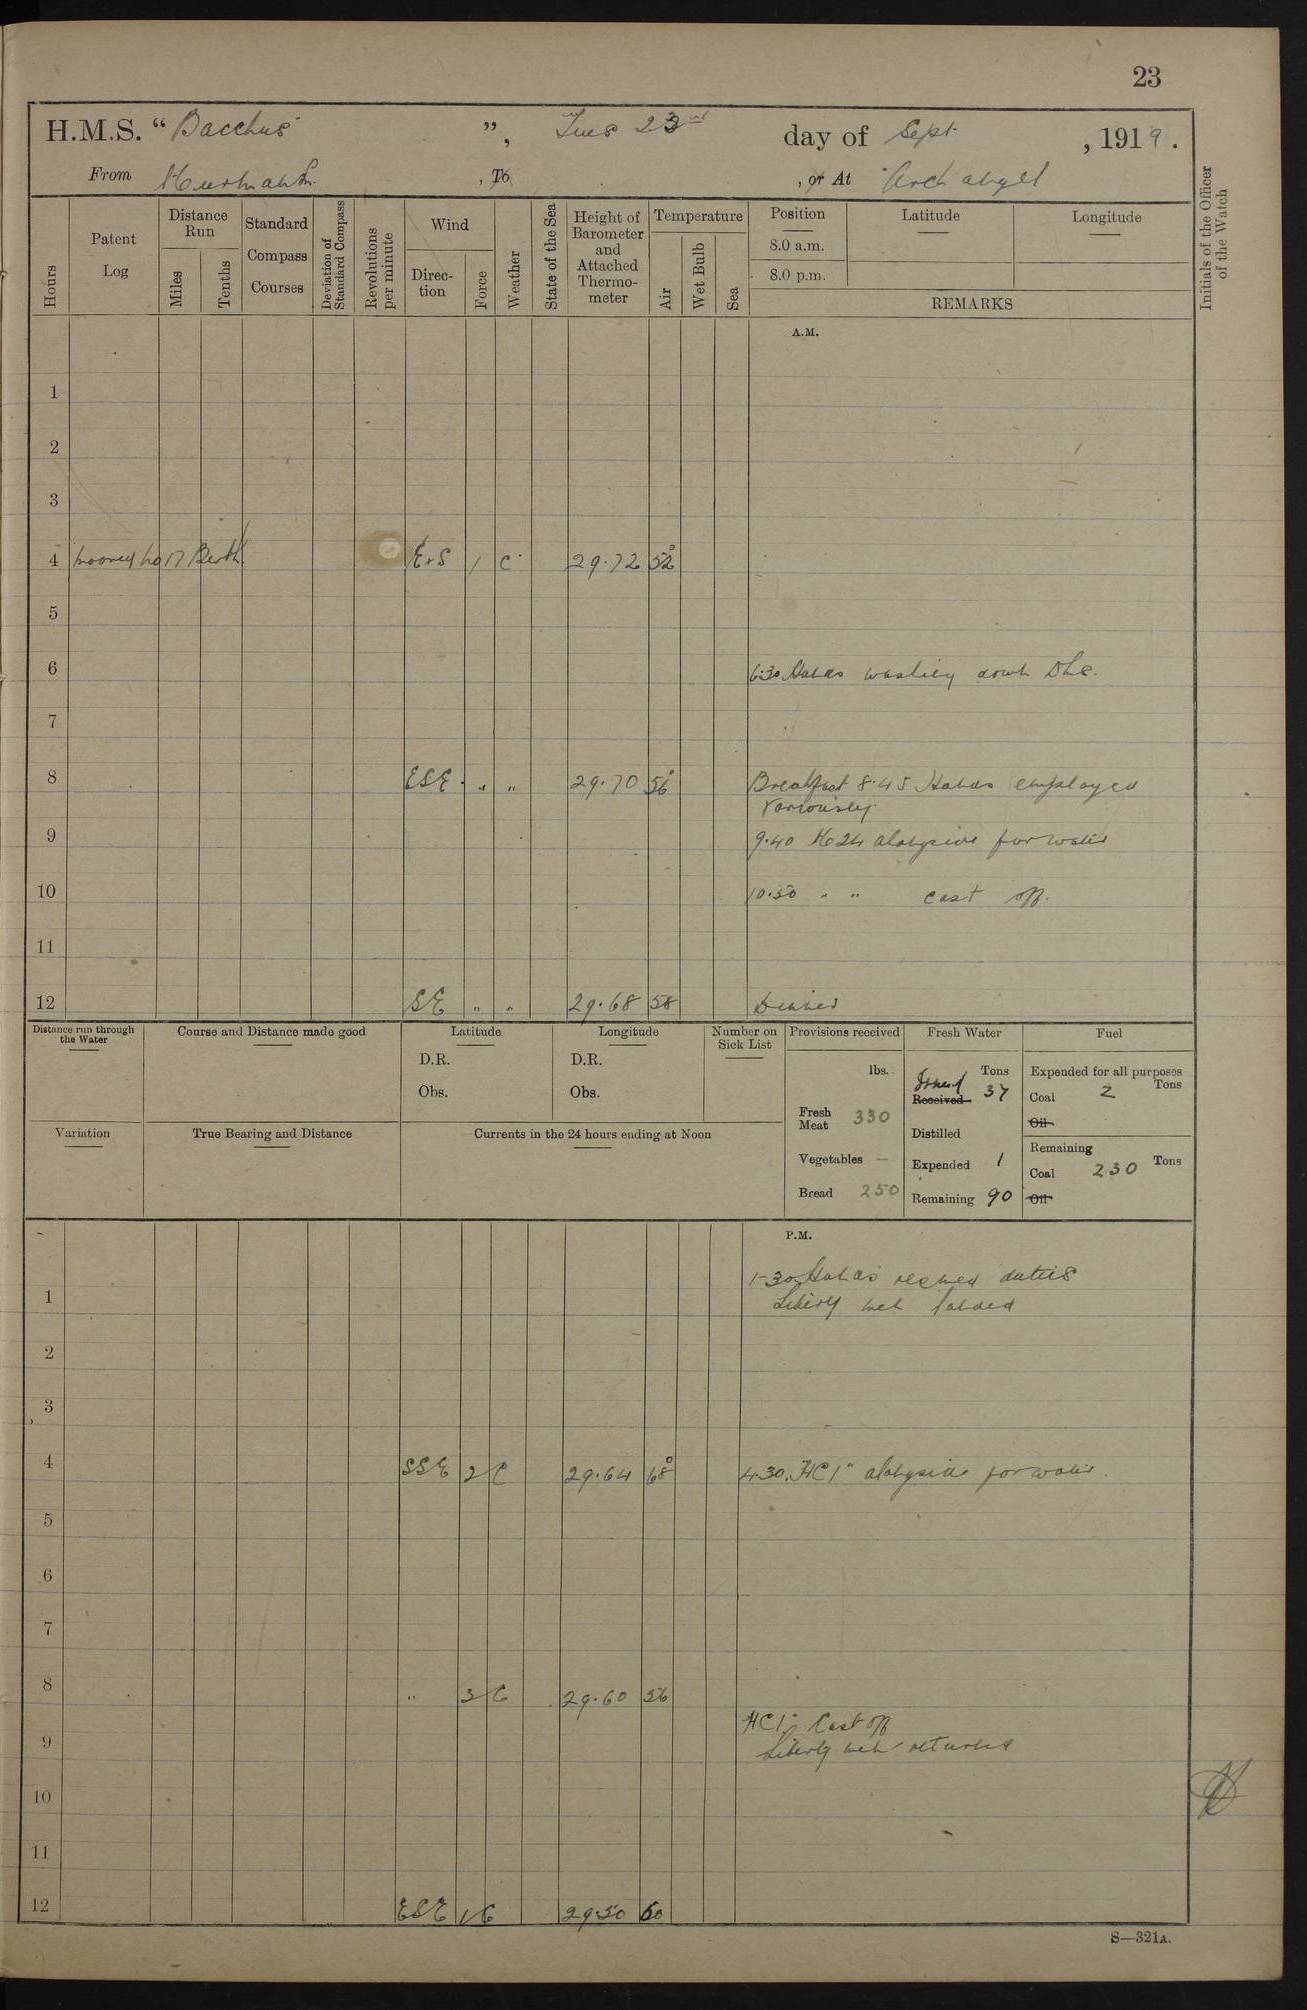 23
H.M.S. "Bacchus", Tues 23rd day of Sept, 1919.
From Murmansk, To , or At Archangel
Hours
Patent Log
Distance Run
Miles
Tenths
Standard Compass Courses
Deviation of Standard Compass
Revolutions per minute
Wind
Direction
Force
Weather
State of the Sea
Height of Barometer and Attached Thermometer
Temperature
Air
Wet Bulb
Sea
Position
8.0 a.m.
8.0 p.m.
Latitude
Longitude
REMARKS
Initials of the Officer of the Watch
A.M.
1
2
3
4 moored No 17 Berth. 1 C 29.72 52°
5
6 6.30 Hands washing down &c.
7
8 ESE " " 29.70 56° Breakfast 8.45 Hands employed
variously.
9 9.40 alongside for water
10 10.50 " " cast off.
11
12 SE " " 29.68 58 Dinner
Distance run through the Water
Course and Distance made good
Latitude
D.R.
Obs.
Longitude
D.R.
Obs.
Number on Sick List
Provisions received
lbs.
Fresh Meat 330
Vegetables —
Bread 250
Fresh Water
Tons
Issued Received 37
Distilled
Expended 1
Remaining 90
Fuel
Expended for all purposes
Tons
Coal 2
Oil
Remaining
Tons
Coal 230
Oil
Variation
True Bearing and Distance
Currents in the 24 hours ending at Noon
P.M.
1-30 Hands resumed duties
1 Liberty men landed
2
3
4 SSE 2 C 29.64 68° 4.30. "HC1" alongside for water.
5
6
7
8 " 3 C 29.60 56
HC1" Cast off
9 Liberty men returned
10
11
12 ESE 1 C 29.50 60
S—321A.